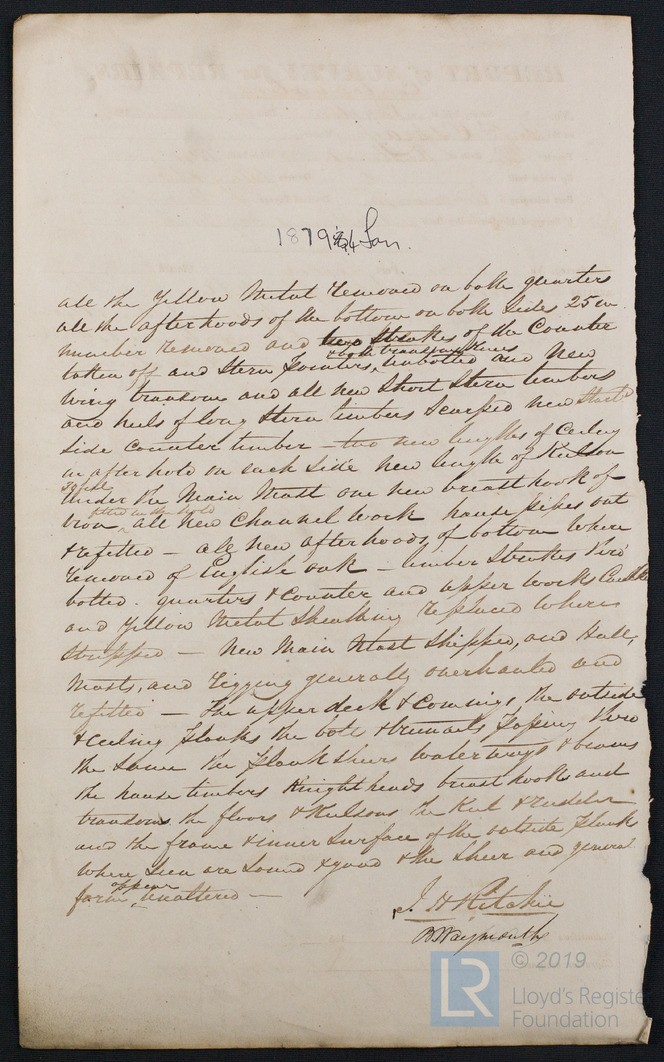 1879 Lon.
all the Yellow Metal removed on both quarters
all the afterhoods of the bottom on both sides 25 in
number removed and two Strakes of the Counter
taken off and Stern Pointers, unbolted and New
& both transom knees
wing transom and all new Short Stern timbers
and heels of long Stern timbers Scarfed new
side Counter timber – two new lengths of Ceiling
in after hold on each side New length of Keelson
30 feet
under the Main Mast one new breasthook of
fitted in the hold
Iron, all new Channel work hause pipes out
& refitted – all new afterhoods of bottom where
removed of English oak – limber Strakes thro'
bolted. quarters & Counter and upper works
and Yellow Metal Sheathing replaced where
stripped – New Main Mast Shipped, and Hull,
Masts, and Rigging generally overhauled and
refitted – The upper deck & Comings, the outside
& Ceiling Planks the bolts & trunnails passing thro
the Same the Planksheers Waterways & beams
the hause timbers Knightheads breast hooks and
transoms the floors & Keelsons the Keel & Rudder
and the frame & inner Surface of the outside Plank
where Seen are Sound & good & the Sheer and general
form appear unaltered –
J. H Ritchie
B Waymouth
LR © 2019
Lloyd's Register
Foundation